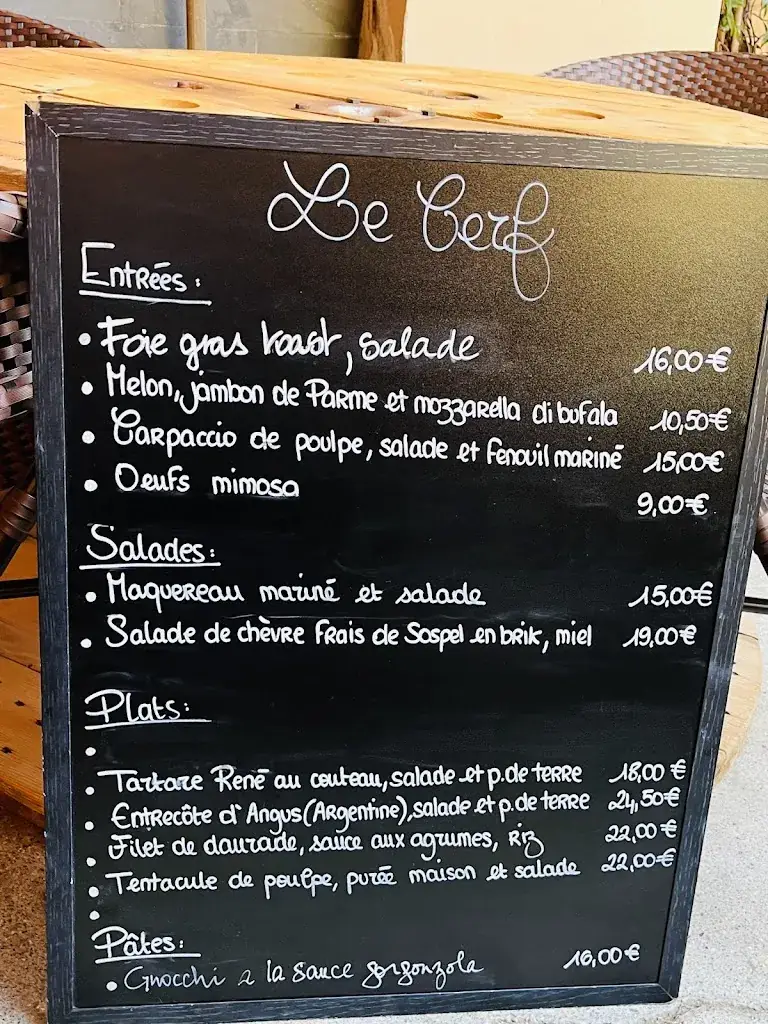 Le Cerf
Entrées:
• Foie gras toast, salade 16,00€
• Melon, jambon de Parme et mozzarella di bufala 10,50€
• Carpaccio de poulpe, salade et fenouil mariné 15,00€
• Oeufs mimosa 9,00€
Salades:
• Maquereau mariné et salade 15,00€
• Salade de chèvre frais de Sospel en brik, miel 19,00€
Plats:
•
• Tartare René au couteau, salade et p. de terre 18,00€
• Entrecôte d'Angus (Argentine), salade et p. de terre 24,50€
• Filet de daurade, sauce aux agrumes, riz 22,00€
• Tentacule de poulpe, purée maison et salade 22,00€
•
Pâtes:
• Gnocchi a la sauce gorgonzola 16,00€